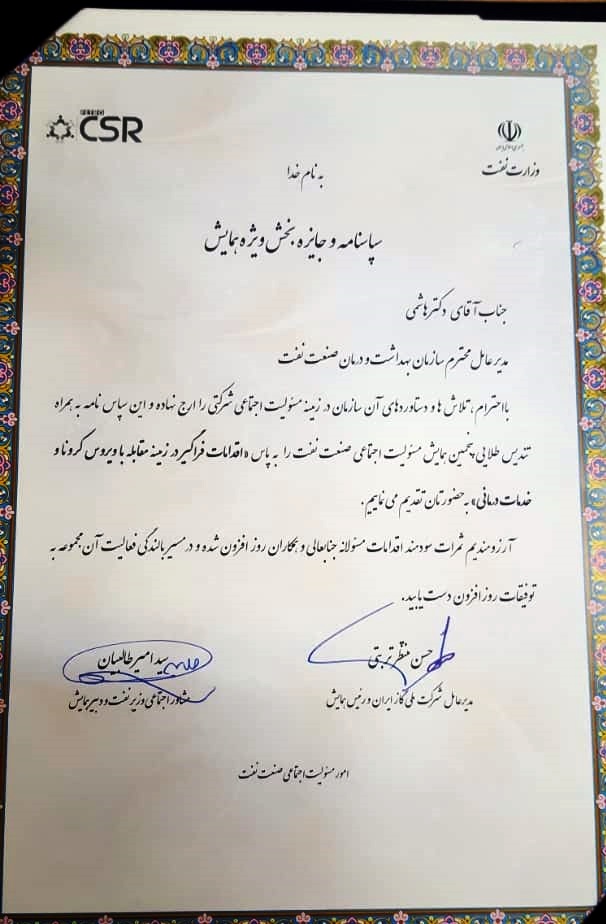 PETRO
CSR
جمهوری اسلامی ایران
وزارت نفت
به نام خدا
سپاسنامه و جایزه بخش ویژه همایش
جناب آقای دکتر هاشمی
مدیر عامل محترم سازمان بهداشت و درمان صنعت نفت
با احترام، تلاش ها و دستاوردهای آن سازمان در زمینه مسئولیت اجتماعی شرکتی را ارج نهاده و این سپاس نامه به همراه
تندیس طلایی پنجمین همایش مسئولیت اجتماعی صنعت نفت را به پاس «اقدامات فراگیر در زمینه مقابله با ویروس کرونا و
خدمات درمانی» به حضورتان تقدیم می نماییم.
آرزومندیم ثمرات سودمند اقدامات مسئولانه جنابعالی و همکاران روز افزون شده و در مسیر بالندگی فعالیت آن مجموعه به
توفیقات روز افزون دست یابید.
حسن منتظر تربتی
مدیر عامل شرکت ملی گاز ایران و رئیس همایش
سید امیر طالبیان
مشاور اجتماعی وزیر نفت و دبیر همایش
امور مسئولیت اجتماعی صنعت نفت